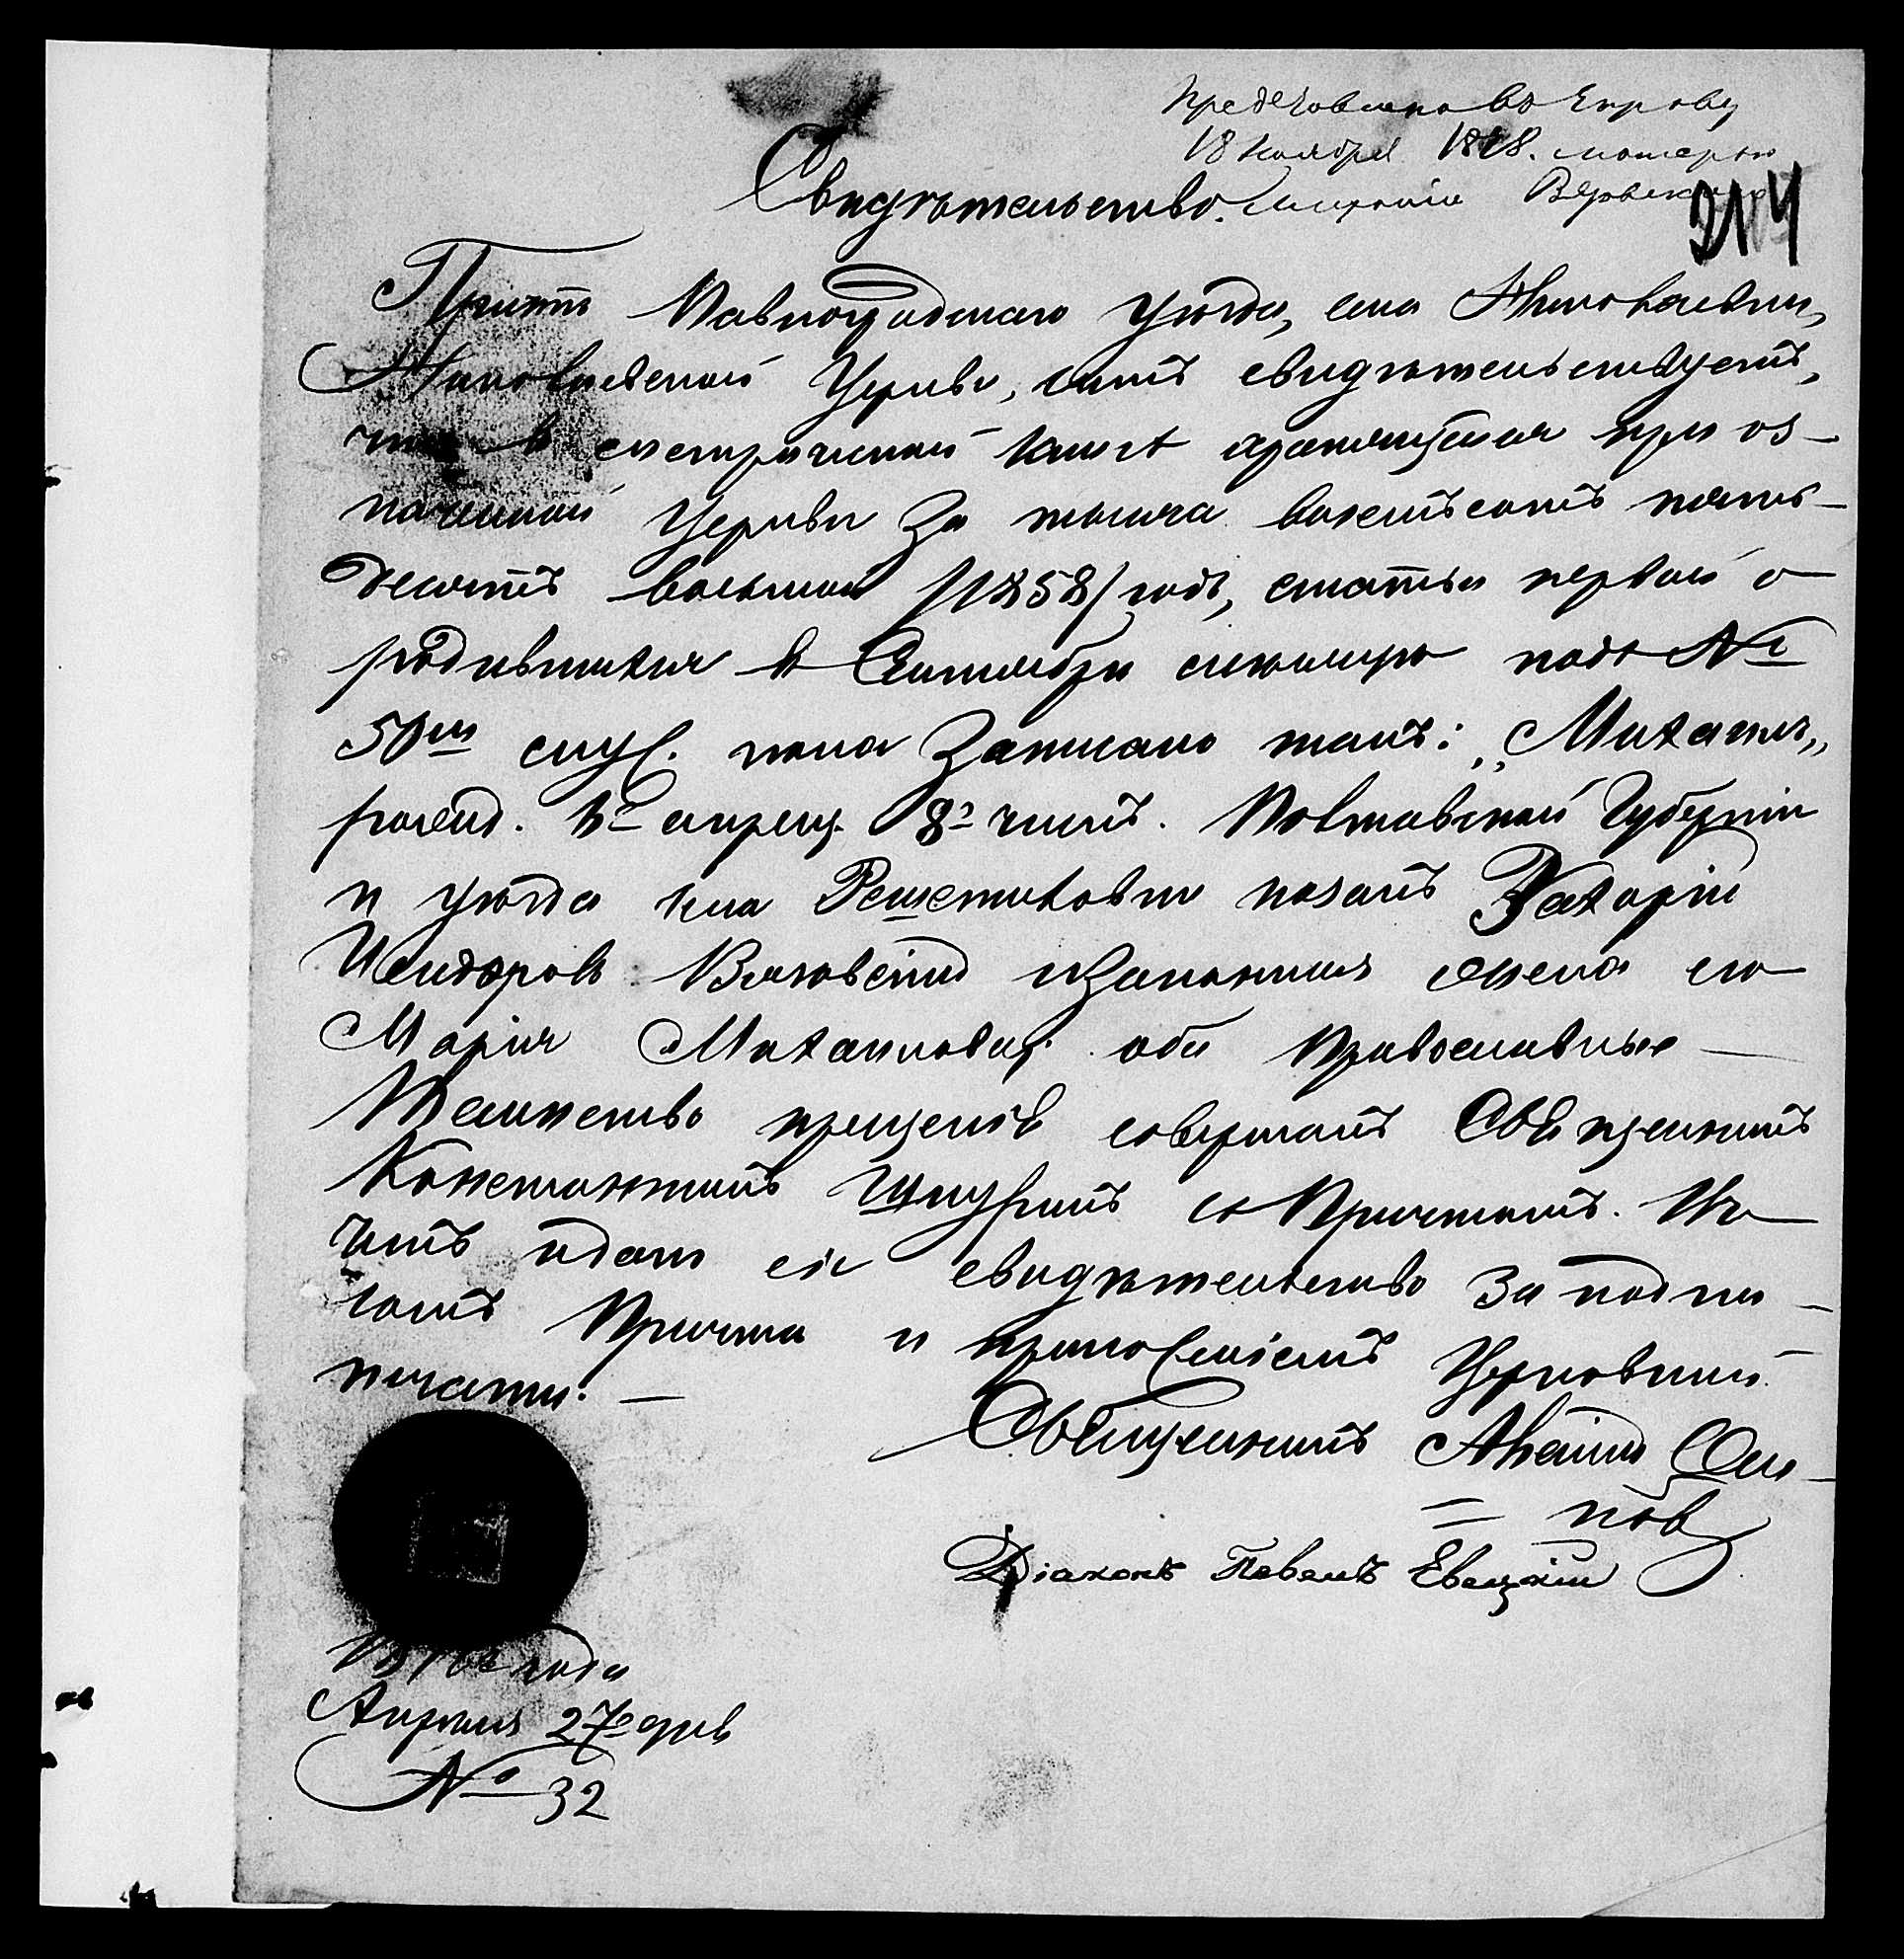 Представлено въ Управу
18 Ноября 1878. матерью
Свидѣтельство.
214
Причтъ Павлоградскаго уѣзда, села Николаевки,
Николаевской Церкви, симъ свидѣтельствуетъ,
что въ метрической книгѣ хранящейся при оз-
наченной Церкви за тысяча восемьсотъ пять-
десятъ восьмой /1858/ годъ, статьи первой о
родившихся въ Сентябри подъ №
50мъ муж. пола записано такъ: „Михаилъ„
рожд. 8 числ. Полтавской Губерніи
и уѣзда села Решетиловки козакъ Захарій
Исидоровъ и законная жена его
Марія Михаиловна оба православные —
Таинство крещенія совершалъ Священникъ
Константинъ съ Причтомъ. Въ
чемъ и дано сіе свидѣтельство за подпи-
сомъ Причта и приложеніемъ Церковной
печати. —
Священникъ
Діаконъ Павелъ Евецкій
года
Апреля 27 дня
№ 32